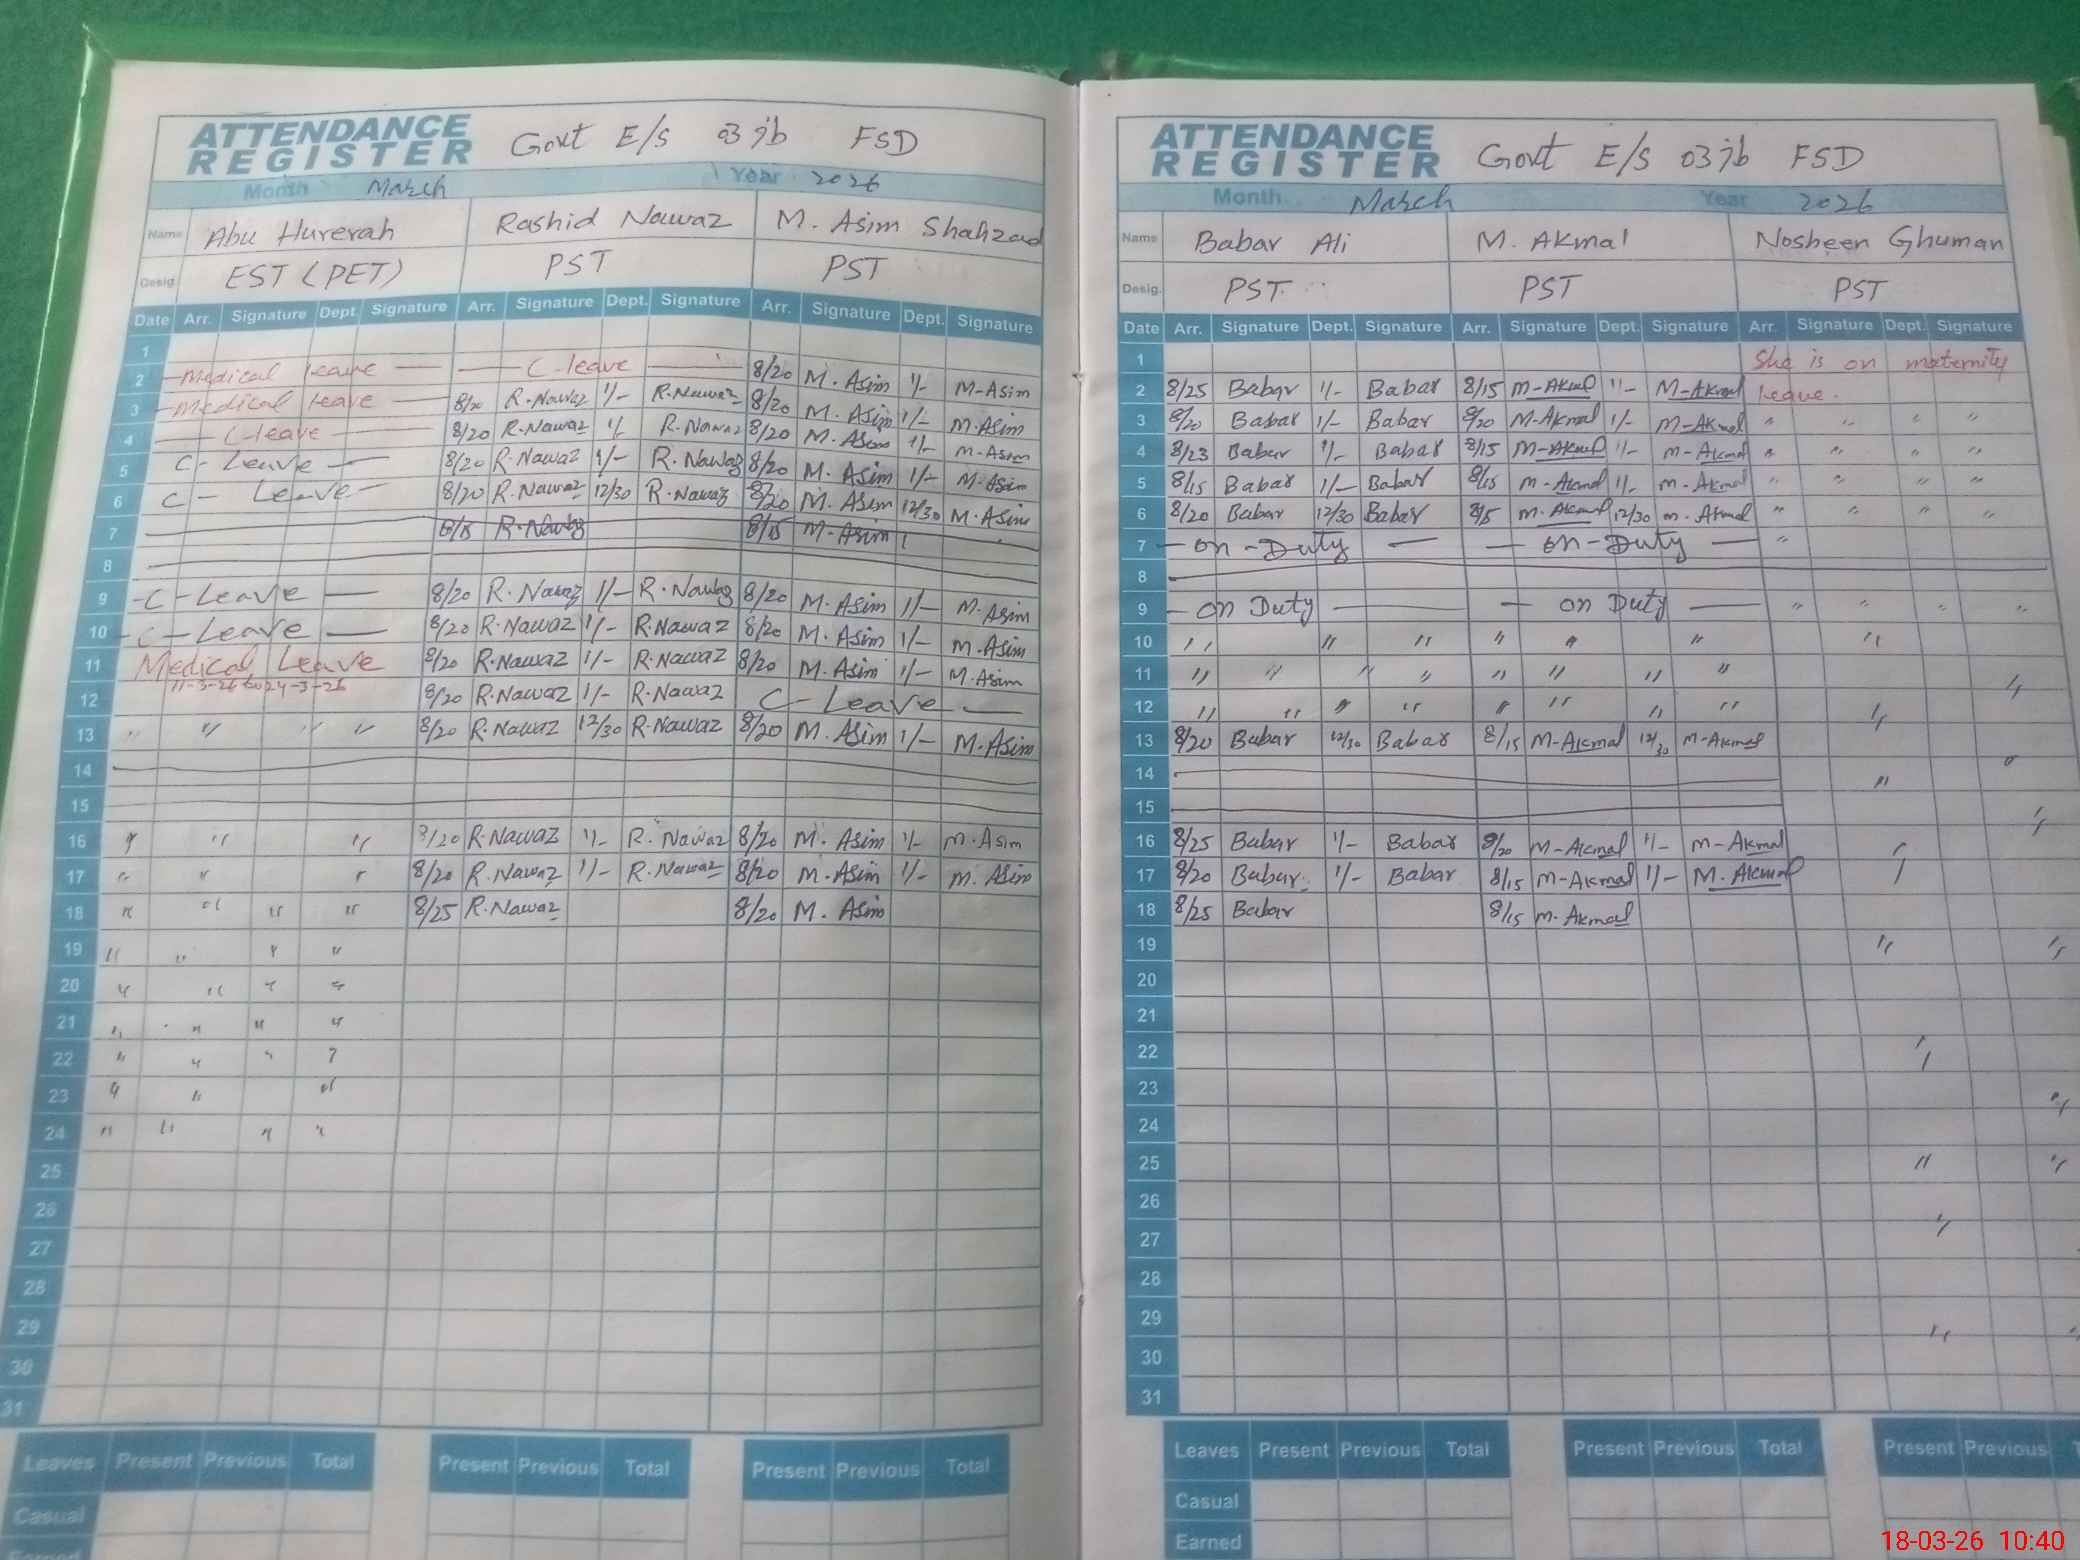 ATTENDANCE REGISTER Govt E/S 03 jb FSD
Month March Year 2026
Name Abu Hurerah Rashid Nawaz M. Asim Shahzad
Desig. EST (PET) PST PST
Date Arr. Signature Dept. Signature Arr. Signature Dept. Signature Arr. Signature Dept. Signature
1
2 Medical leave C-leave 8/20 M. Asim 1/- M-Asim
3 Medical leave 8/20 R.Nawaz 1/- R.Nawaz 8/20 M. Asim 1/- M.Asim
4 C-leave 8/20 R.Nawaz 1/ R.Nawaz 8/20 M. Asim 1/- M-Asim
5 C-Leave 8/20 R.Nawaz 1/- R.Nawaz 8/20 M. Asim 1/- M.Asim
6 C-Leave 8/20 R.Nawaz 12/30 R.Nawaz 8/20 M. Asim 12/30 M.Asim
7 8/15 R.Nawaz 8/15 M-Asim
8
9 -C-Leave 8/20 R.Nawaz 1/- R.Nawaz 8/20 M. Asim 1/- M.Asim
10 -C-Leave 8/20 R.Nawaz 1/- R.Nawaz 8/20 M. Asim 1/- M.Asim
11 Medical Leave 8/20 R.Nawaz 1/- R.Nawaz 8/20 M. Asim 1/- M.Asim
11-3-26 to 24-3-26
12 8/20 R.Nawaz 1/- R.Nawaz C-Leave
13 " " " " 8/20 R.Nawaz 12/30 R.Nawaz 8/20 M. Asim 1/- M.Asim
14
15
16 " " " 8/20 R.Nawaz 1/- R.Nawaz 8/20 M. Asim 1/- M.Asim
17 " " " 8/20 R.Nawaz 1/- R.Nawaz 8/20 M. Asim 1/- M. Asim
18 " " " " 8/25 R.Nawaz 8/20 M. Asim
19 " " " "
20 " " " "
21 " " " "
22 " " "
23 " " "
24 " " " "
25
26
27
28
29
30
31
Leaves Present Previous Total Present Previous Total Present Previous Total
Casual
Earned
ATTENDANCE REGISTER Govt E/S 03 jb FSD
Month March Year 2026
Name Babar Ali M. Akmal Nosheen Ghuman
Desig. PST PST PST
Date Arr. Signature Dept. Signature Arr. Signature Dept. Signature Arr. Signature Dept. Signature
1 She is on maternity
2 8/25 Babar 1/- Babar 8/15 M-Akmal 1/- M-Akmal leave.
3 8/20 Babar 1/- Babar 8/20 M-Akmal 1/- M-Akmal " " " "
4 8/23 Babar 1/- Babar 8/15 M-Akmal 1/- M-Akmal " " " "
5 8/15 Babar 1/- Babar 8/15 M-Akmal 1/- M-Akmal " " " "
6 8/20 Babar 12/30 Babar M-Akmal 12/30 M-Akmal " " " "
7 - on-Duty - - on-Duty - "
8
9 - on Duty - - on Duty - " " " "
10 " " " " " " "
11 " " " " " " " " "
12 " " " " " " " " "
13 8/20 Babar 12/30 Babar 8/15 M-Akmal 12/30 M-Akmal "
14 "
15 "
16 8/25 Babar 1/- Babar 8/20 M-Akmal 1/- M-Akmal "
17 8/20 Babar 1/- Babar 8/15 M-Akmal 1/- M.Akmal
18 8/25 Babar 8/15 M-Akmal
19 " "
20
21
22 "
23 "
24
25 " "
26
27 "
28
29 " "
30
31
Leaves Present Previous Total Present Previous Total Present Previous
Casual
Earned
18-03-26 10:40